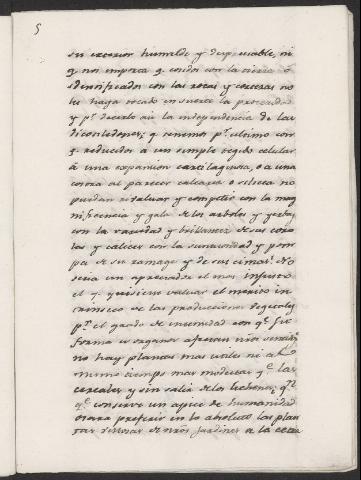 5
su exterior humilde y despreciable, ni
q. nos importa q. cosidos con la tierra ó
identificados con las rocas y cortezas no
les haya tocado en suerte la
y p.r decirlo asi la independencia de las
q. tenemos p.r ultimo con
q. reducidos à un simple tegido celular
à una expansion cartilaginosa, o a una
costra al parecer calcarea o silicea no
puedan revaluar y competir con la mag
nificencia y gala de los arboles y yerbas
con la variedad y brillantez de sus coro
las y calices con la sumtuosidad y pom
pa de su ramage y de sus cimas. No
seria un apreciador el mas injusto
el q. quisiera valuar el merito in
trinseco de las producciones vegetales
p.r el grado de intensidad con q.e su
forma u organos afectan nros sentidos
no hay plantas mas utiles ni al
mismo tiempo mas modestas q.e las
cereales y sin salir de los lichenes, q.n
q.e conserve un apice de humanidad
osara preferir en lo absoluto las plan
tas de nros jardines a la